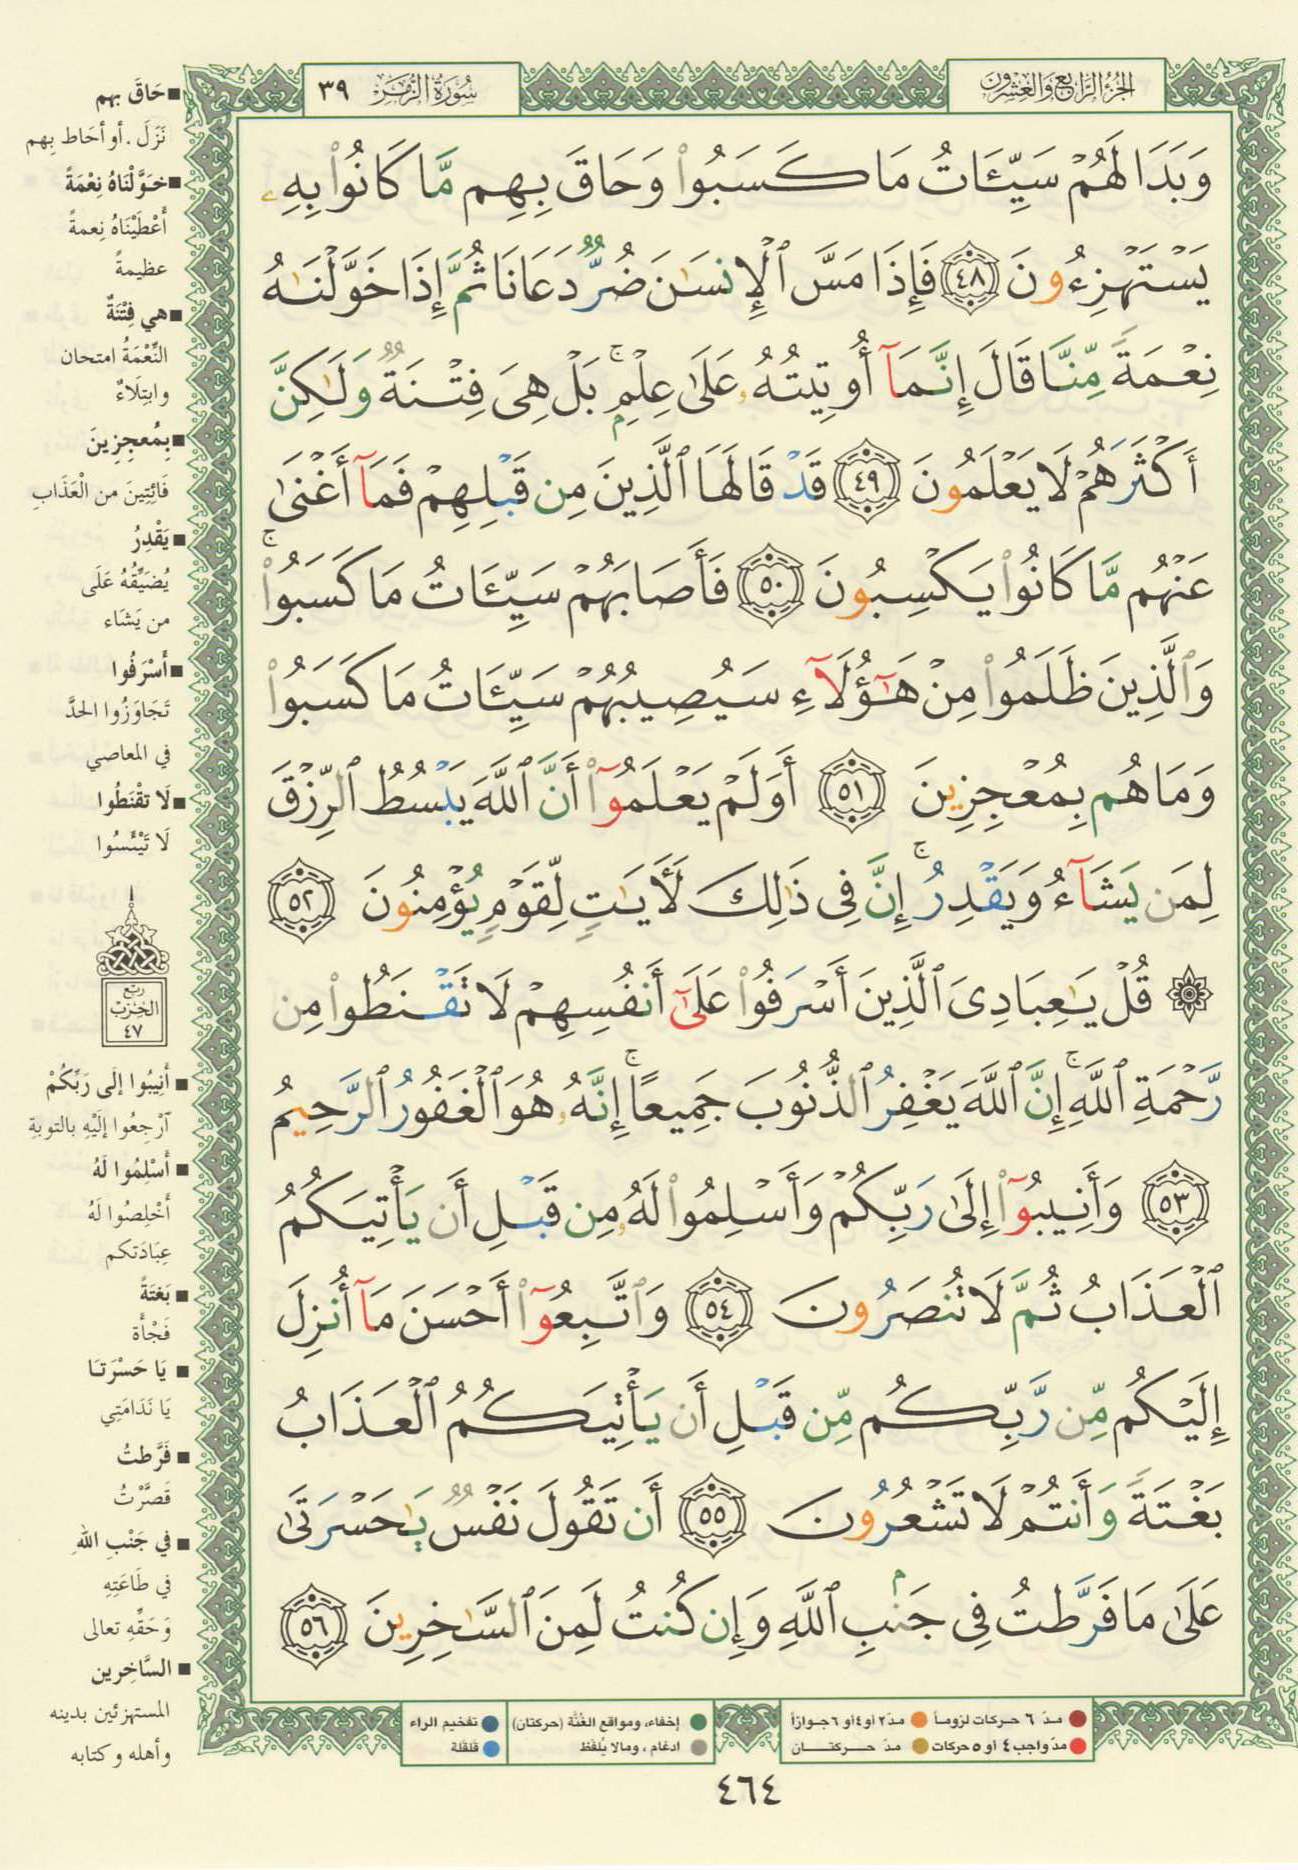 الجزء الرابع والعشرون
سورة الزمر ٣٩
وَبَدَا لَهُمْ سَيِّـَٔاتُ مَا كَسَبُوا۟ وَحَاقَ بِهِم مَّا كَانُوا۟ بِهِۦ
يَسْتَهْزِءُونَ ٤٨ فَإِذَا مَسَّ ٱلْإِنسَـٰنَ ضُرٌّ دَعَانَا ثُمَّ إِذَا خَوَّلْنَـٰهُ
نِعْمَةً مِّنَّا قَالَ إِنَّمَآ أُوتِيتُهُۥ عَلَىٰ عِلْمٍۭ ۚ بَلْ هِىَ فِتْنَةٌ وَلَـٰكِنَّ
أَكْثَرَهُمْ لَا يَعْلَمُونَ ٤٩ قَدْ قَالَهَا ٱلَّذِينَ مِن قَبْلِهِمْ فَمَآ أَغْنَىٰ
عَنْهُم مَّا كَانُوا۟ يَكْسِبُونَ ٥٠ فَأَصَابَهُمْ سَيِّـَٔاتُ مَا كَسَبُوا۟ ۚ
وَٱلَّذِينَ ظَلَمُوا۟ مِنْ هَـٰٓؤُلَآءِ سَيُصِيبُهُمْ سَيِّـَٔاتُ مَا كَسَبُوا۟
وَمَا هُم بِمُعْجِزِينَ ٥١ أَوَلَمْ يَعْلَمُوٓا۟ أَنَّ ٱللَّهَ يَبْسُطُ ٱلرِّزْقَ
لِمَن يَشَآءُ وَيَقْدِرُ ۚ إِنَّ فِى ذَٰلِكَ لَـَٔايَـٰتٍ لِّقَوْمٍ يُؤْمِنُونَ ٥٢
۞ قُلْ يَـٰعِبَادِىَ ٱلَّذِينَ أَسْرَفُوا۟ عَلَىٰٓ أَنفُسِهِمْ لَا تَقْنَطُوا۟ مِن
رَّحْمَةِ ٱللَّهِ ۚ إِنَّ ٱللَّهَ يَغْفِرُ ٱلذُّنُوبَ جَمِيعًا ۚ إِنَّهُۥ هُوَ ٱلْغَفُورُ ٱلرَّحِيمُ
٥٣ وَأَنِيبُوٓا۟ إِلَىٰ رَبِّكُمْ وَأَسْلِمُوا۟ لَهُۥ مِن قَبْلِ أَن يَأْتِيَكُمُ
ٱلْعَذَابُ ثُمَّ لَا تُنصَرُونَ ٥٤ وَٱتَّبِعُوٓا۟ أَحْسَنَ مَآ أُنزِلَ
إِلَيْكُم مِّن رَّبِّكُم مِّن قَبْلِ أَن يَأْتِيَكُمُ ٱلْعَذَابُ
بَغْتَةً وَأَنتُمْ لَا تَشْعُرُونَ ٥٥ أَن تَقُولَ نَفْسٌ يَـٰحَسْرَتَىٰ
عَلَىٰ مَا فَرَّطتُ فِى جَنۢبِ ٱللَّهِ وَإِن كُنتُ لَمِنَ ٱلسَّـٰخِرِينَ ٥٦
■ حَاقَ بهم
نَزَلَ . أو أحَاط بِهم
■ خوَّلْنَاهُ نِعْمَةً
أعْطَيْنَاهُ نِعمةً
عظيمةً
■ هي فِتْنَةٌ
النِّعْمَةُ امتحان
وابتِلَاءٌ
■ بِمُعجِزِينَ
فَائِتِينَ من الْعَذَابِ
■ يَقْدِرُ
يُضَيِّقُهُ عَلَى
من يَشَاء
■ أَسْرَفُوا
تَجَاوَزُوا الحدَّ
في المعاصي
■ لَا تقْنَطُوا
لَا تَيْئَسُوا
ربع
الحزب
٤٧
■ أَنِيبُوا إلَى رَبِّكُمْ
آرْجِعُوا إلَيْهِ بالتوبةِ
■ أَسْلِمُوا لَهُ
أخْلِصُوا لَهُ
عِبَادَتكم
■ بَغتَةً
فَجْأَة
■ يَا حَسْرَتَا
يَا نَدَامَتِي
■ فَرَّطتُ
قَصَّرْتُ
■ في جَنْبِ اللهِ
في طَاعَتِهِ
وَحَقِّهِ تعالى
■ السَّاخِرين
المستهزئين بدينه
وأهله وكتابه
مدّ ٦ حركات لزوماً مدّ ٢ أو ٤ أو ٦ جوازاً
مدّ واجب ٤ أو ٥ حركات مدّ حركتان
إخفاء، ومواقع الغُنَّة (حركتان)
ادغام ، ومالا يُلفَظ
تفخيم الراء
قلقلة
٤٦٤